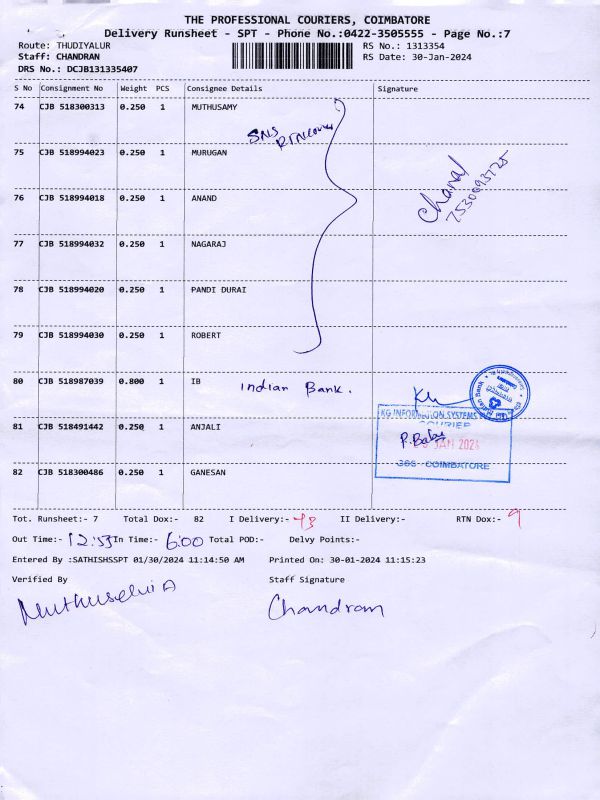 THE PROFESSIONAL COURIERS, COIMBATORE
Delivery Runsheet - SPT - Phone No.:0422-3505555 - Page No.:7
Route: THUDIYALUR RS No.: 1313354
Staff: CHANDRAN RS Date: 30-Jan-2024
DRS No.: DCJB131335407
S No Consignment No Weight PCS Consignee Details Signature
74 CJB 518300313 0.250 1 MUTHUSAMY
SNS
75 CJB 518994023 0.250 1 MURUGAN
76 CJB 518994018 0.250 1 ANAND
7530093725
77 CJB 518994032 0.250 1 NAGARAJ
78 CJB 518994020 0.250 1 PANDI DURAI
79 CJB 518994030 0.250 1 ROBERT
80 CJB 518987039 0.800 1 IB Indian Bank.
KG INFORMATION SYSTEMS
COURIER
81 CJB 518491442 0.250 1 ANJALI
P. Babu
JAN 2024
COIMBATORE
82 CJB 518300486 0.250 1 GANESAN
Tot. Runsheet:- 7 Total Dox:- 82 I Delivery:- 73 II Delivery:- RTN Dox:- 9
Out Time:- 12:53 In Time:- 6:00 Total POD:- Delvy Points:-
Entered By :SATHISHSSPT 01/30/2024 11:14:50 AM Printed On: 30-01-2024 11:15:23
Verified By Staff Signature
Muthuselvi A Chandran